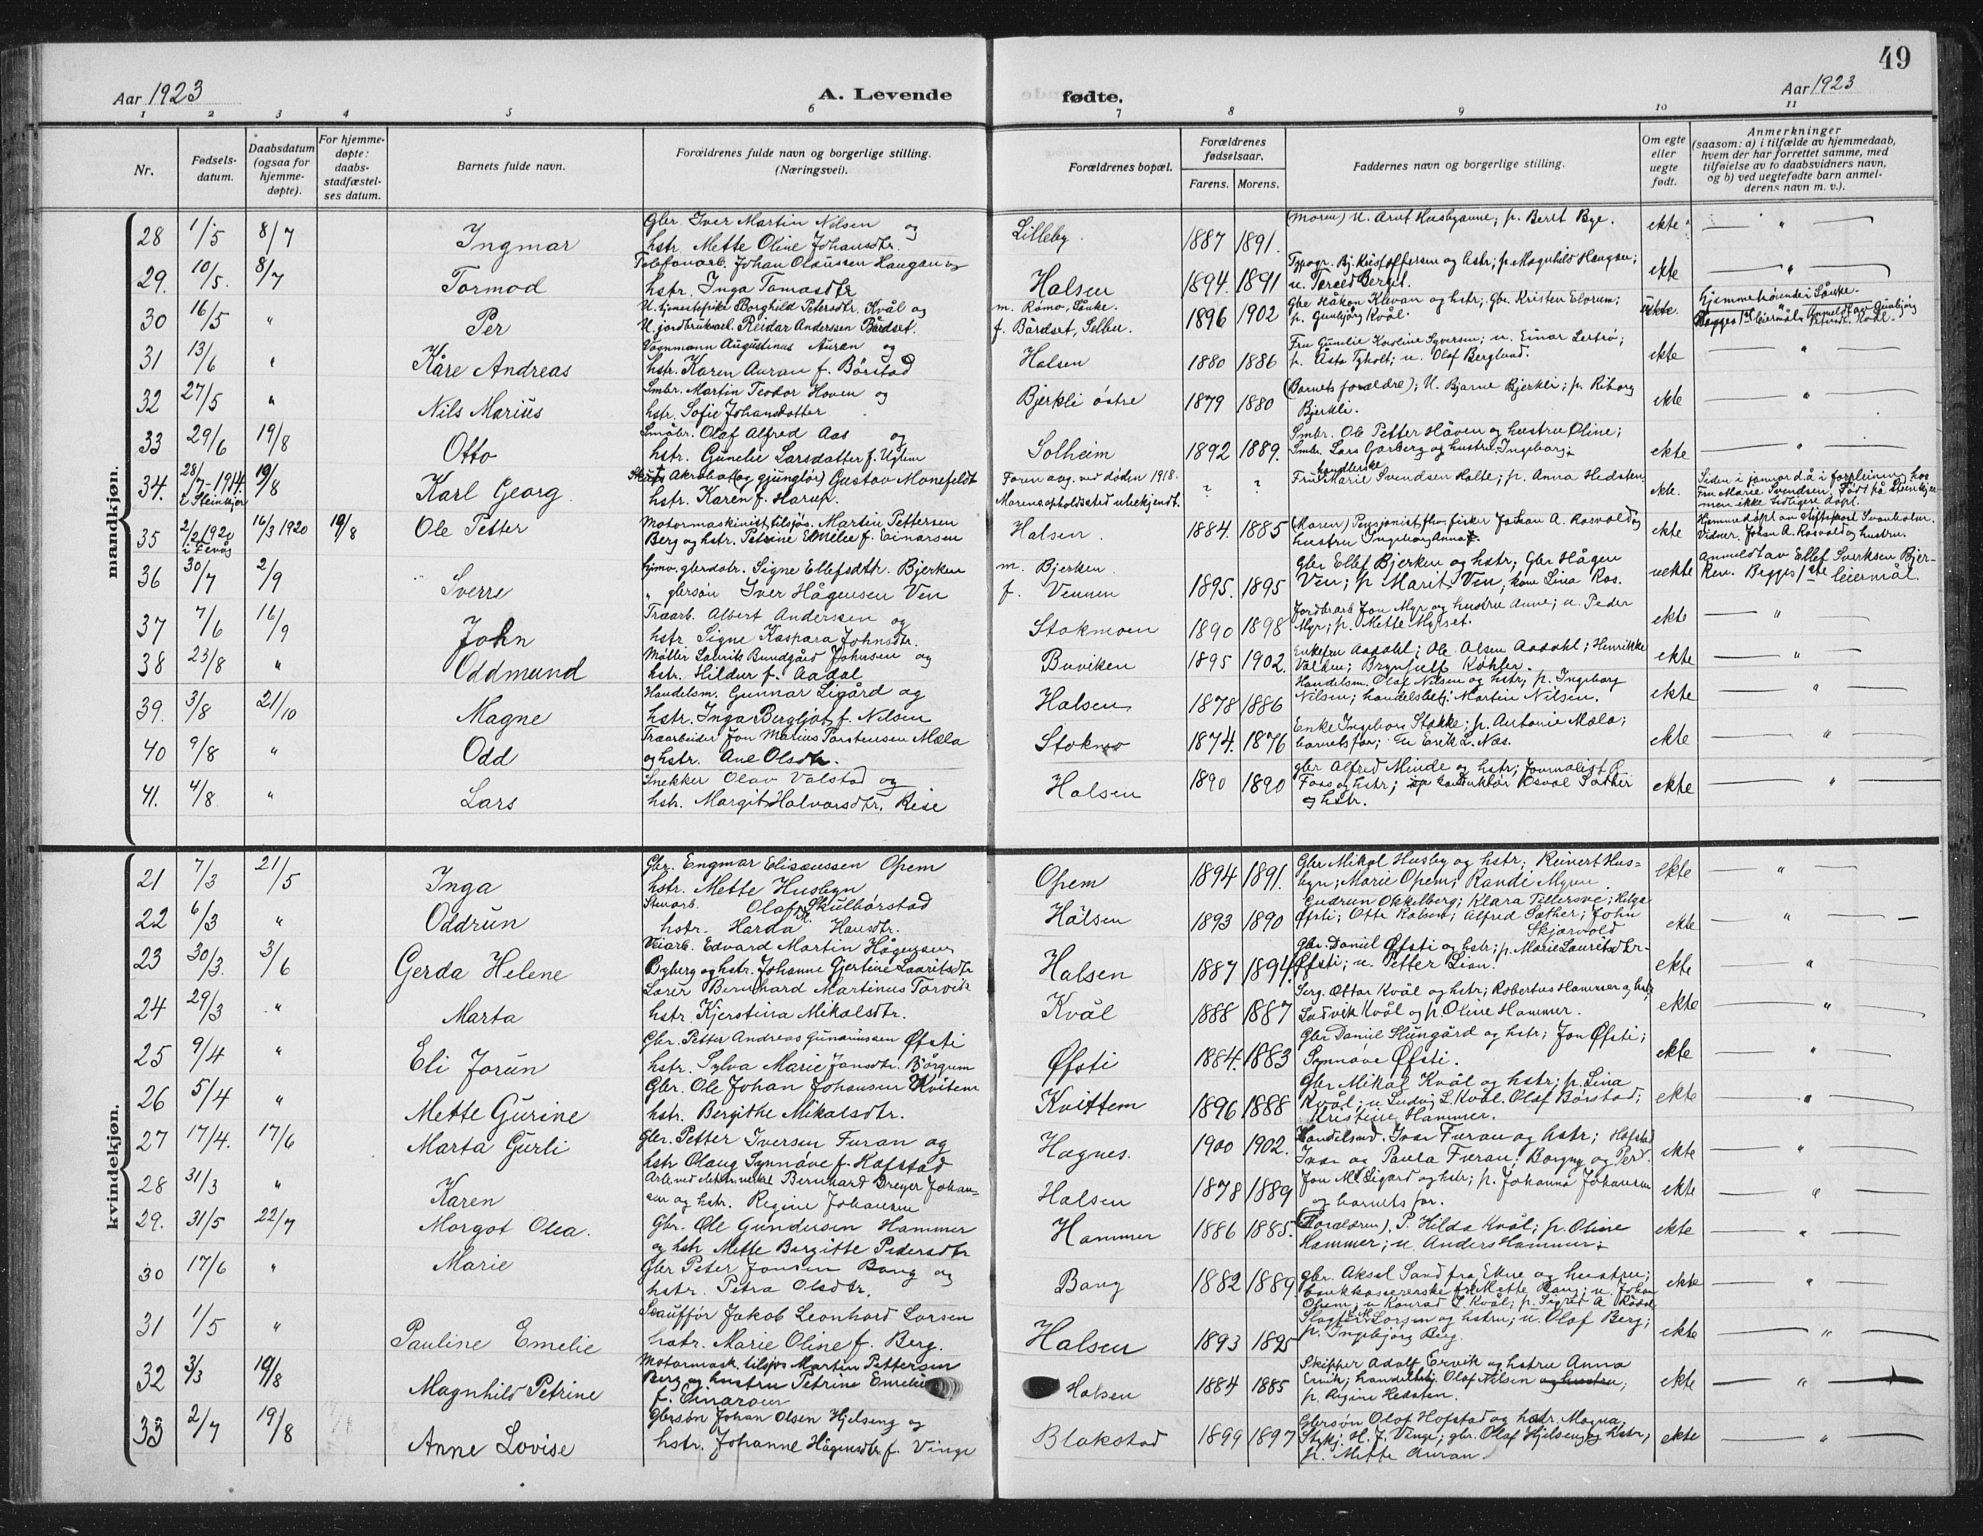 49
Aar 1923
A. Levende
fødte.
Aar 1923
1 2 3 4 5 6 7 8 9 10 11
Nr.
Fødsels-
datum.
Daabsdatum
(ogsaa for
hjemme-
døpte).
For hjemme-
døpte:
daabs-
stadfæstel-
ses datum.
Barnets fulde navn.
Forældrenes fulde navn og borgerlige stilling.
(Næringsvei).
Forældrenes bopæl.
Forældrenes
fødselsaar.
Farens. Morens.
Faddernes navn og borgerlige stilling.
Om egte
eller
uegte
født.
Anmerkninger
(saasom: a) i tilfælde av hjemmedaab,
hvem der har forrettet samme, med
tilføielse av to daabsvidners navn,
og b) ved uegtefødte barn anmel-
derens navn m. v.).
mandkjøn.
28 1/5 8/7 Ingmar Gbr. Iver Martin Nilsen og Lilleby. 1887 1891. (Moren) U. Arnt Husbyaune; p. Berit Bye. ekte "
hstr. Mette Oline Johansdtr.
29. 10/5. 8/7 Tormod Telefonarb. Johan Olaussen Haugan og Halsen 1894. 1891 Typogr. Bj. Kristoffersen og hstr; p. Magnhild Haugan; ekte "
hstr. Inga Tomasdtr u. Terold Berget.
30 16/5 " Per U. tjenestepike Borghild Petersdtr. Kvål og m. Rømo, 1896 1902 Gbr Håkon Klevan og hstr; Gbr. Kristen Elvrum; uekte.
U. jordbruksel. Reidar Anderssen Bårdset. f. Bårdset, Selbu. p. Gunbjörg Kvål.
31 13/6 " Kåre Andreas Vognmann Augustinus Auran og Halsen 1880 1886 Fru Gunelie Karoline Syversen; u. Einar ekte "
hstr. Karen Auran f. Börstad p. Åsta Tyholt; u. Olaf Berglund.
32 27/5 " Nils Marius Smbr. Martin Teodor Hoven og Bjerkli østre 1879 1880 (Barnets forældre); U. Bjarne Bjerkli; p. Riborg ekte "
hstr. Sofie Johansdatter Bjerkli.
33 29/6 19/8 Otto Småbr. Olaf Alfred Aas og Solheim 1892 1889. Smbr. Ole Petter Håven og hustru Oline; ekte "
hstr. Gunelie Larsdatter f. Uglem Smbr. Lars Garberg og hustru Ingeborg.
34. 28/7-1914. i Steinkjer 19/8 Karl Georg. Akrobat (og gjunglør) Gustav Monefeldt Faren avg. ved døden 1918. ? ? Fru Marie Svendsen Halte; p. Anna Hedsten ekte. Siden i januar d.å. i forpleining hos
hstr. Karen f. Harup. Morens opholdssted ubekjendt. Fru Marie Svendsen. Født på Steinkjer
men ikke tidligere døpt.
35 2/2 1920 16/3 1920 19/8 Ole Petter Motormaskinist, tilsjøs. Martin Pettersen Halsen. 1884. 1885 (Moren) Pensjonist fhv. fisker Johan A. Rosvold og ekte
Berg og hstr. Petrine Emelie f. Einarsen hustru Ingeborg Anna. Vidner: Johan A. Rosvold og hustru.
36 30/7 2/9 Sverre hjmv. gbrdatr. Signe Ellefsdtr. Bjerken m. Bjerken 1895. 1895 Gbr Ellef Bjerken og hstr; Gbr Hågen uekte Anmeldt av Ellef Bjer-
" gbrsøn Iver Hågensen Ven f. Vennen Ven; p Marit Ven; Lina Ros. ken. Begges 1ste leiermål.
37 7/6 16/9 John Træarb. Albert Anderssen og Stokmoen 1890 1898 Jordbrarb. Jon Myr og hustru Anne; u. Peder ekte "
hstr. Signe Kaspara Johnsdtr. Myr; p. Mette Myrset.
38 23/8 " Oddmund Møller Laurits Bundgård Johnsen og Buviken 1895 1902. Enkefru Aadahl; Ole Olsen Aadahl; Henrikke ekte "
hstr. Hildur f. Aadal Valden; Brynjulf Köhler.
39. 3/8 21/10 Magne Handelsm. Gunnar Ligård og Halsen 1878 1886 Handelsm. Olaf Nilsen og hstr; p. Ingeborg ekte "
hstr. Inga Bergljot f. Nilsen Nilsen; handelsbetj. Martin Nilsen.
40 9/8 " Odd Træarbeider Jon Marius Torstensen Mæla Stokmo 1874. 1876 Enke Ingeborg Stokke; p. Antonie Mæla; ekte "
og hstr. Ane Olsdtr. barnets far; Erik L. Næs.
41. 4/8. " Lars Snekker Olav Valstad og Halsen 1890 1890 gbr Alfred Minde og hstr; Journalist R. ekte "
hstr. Margit Halvorsdtr. Reise og hstr; konduktør Osval Sather
og hstr.
kvindekjøn.
21 7/3 21/5 Inga Gbr. Engmar Eliseussen Opem Opem 1894 1891. Gbr Mikal Husby og hstr; Reinert Hus- ekte "
hstr. Mette Husbyn byn; Marie Opem; Randi Myrun.
22 6/3 " Oddrun Stenarb. Olaf Skulbörstad Halsen 1893 1890 Gudrun Okkelberg; Klara Tillersve; Helga ekte "
hstr. Harda M. Hansdtr. Øfsti; Otto Rolsen; Alfred Sæther; John
Skjærvold
23 30/3. 3/6 Gerda Helene Veiarb. Edvard Martin Hågensen Halsen 1887 1894. Gbr. Daniel Øfsti og hstr; p. Marie Lauritsdtr- ekte "
Byberg og hstr. Johanne Gjertine Lauritsdtr Øfsti; u. Petter Lian.
24 29/3 " Marta Lærer Bernhard Martinus Torvik Kvål 1888 1887 Serg. Ottar Kvål og hstr; Robertus Hammer og hstr; ekte "
hstr. Kjerstina Mikalsdtr. Ludvik Kvål og p. Oline Hammer.
25 9/4 " Eli Jorun Gbr. Petter Andreas Gunnarussen Øfsti Øfsti 1884. 1883 Gbr Daniel Hungård og hstr; Jon Øfsti; ekte "
hstr. Sylva Marie Jonsdtr. Björgum Synnøve Øfsti.
26 5/4 " Mette Gurine Gbr. Ole Johan Johansen Kvitem Kvittem 1896 1888 Gbr Mikal Kvål og hstr; p. Lina ekte "
hstr. Bergithe Mikalsdtr. Kvål; u Ludvig L. Kvål. Olaf Börstad;
Kristine Hammer.
27 17/4. 17/6 Marta Gurli Gbr. Petter Iversen Furan og Hognes. 1900 1902. Handelsmd. Ivar Furan og hstr; Hofstad ekte "
hstr Olaug Synnöve f. Hofstad Ivar og Paula Furan; Borgny og Per
28 31/3 " Karen Arb. ved Bernhard Dreyer Johan- Halsen 1878 1889 Jon M. Ligard og hstr; p. Johanna Johansen ekte "
sen og hstr. Regine Johansen og barnets far.
29. 31/5 22/7 Morgot Olea. Gbr. Ole Gundersen Hammer Hammer 1886 1885. (Forældren), P. Hilda Kvål; p. Oline ekte "
og hstr Mette Bergitte Pedersdtr Hammer; u. Anders Hammer;
30 17/6 " Marie Gbr Peter Jonsen Bang og Bang 1882 1889 gbr. Aksel Sand fra Ekne og hustru; ekte "
hstr. Petra Olsdtr. bankkassererske frk Mette Bang; u. Johan
Opem; u Konrad L. Kvål; p. Sigrid A.
31 1/5 " Pauline Emelie Scauffør Jakob Leonhard Larsen Halsen 1893 1895 Slagter Larsen og hstru; u. Olaf Berg; ekte "
hstr. Marie Oline f. Berg. p. Ingebjörg Berg.
32 3/3 19/8 Magnhild Petrine Motormask. tilsjøs Martin Pettersen Halsen 1884 1885 Skipper Adolf Ervik og hstru Anna ekte "
Berg og hustru Petrine Emelie Ervik; handelsbetj. Olaf Nilsen og hustru;
f. Einarsen p. Regine Hedsten.
33 2/7 19/8 Anne Lovise Gbrsøn Johan Olsen Hjelseng og Blakstad 1899 1897 Gbrsøn Olaf Hofstad og hstr. Magna; ekte "
hstr. Johanne Hågensdtr. f. Vinge H. J. Vinge; gbr. Olaf Hjelseng og hstr;
p. Mette Auran.